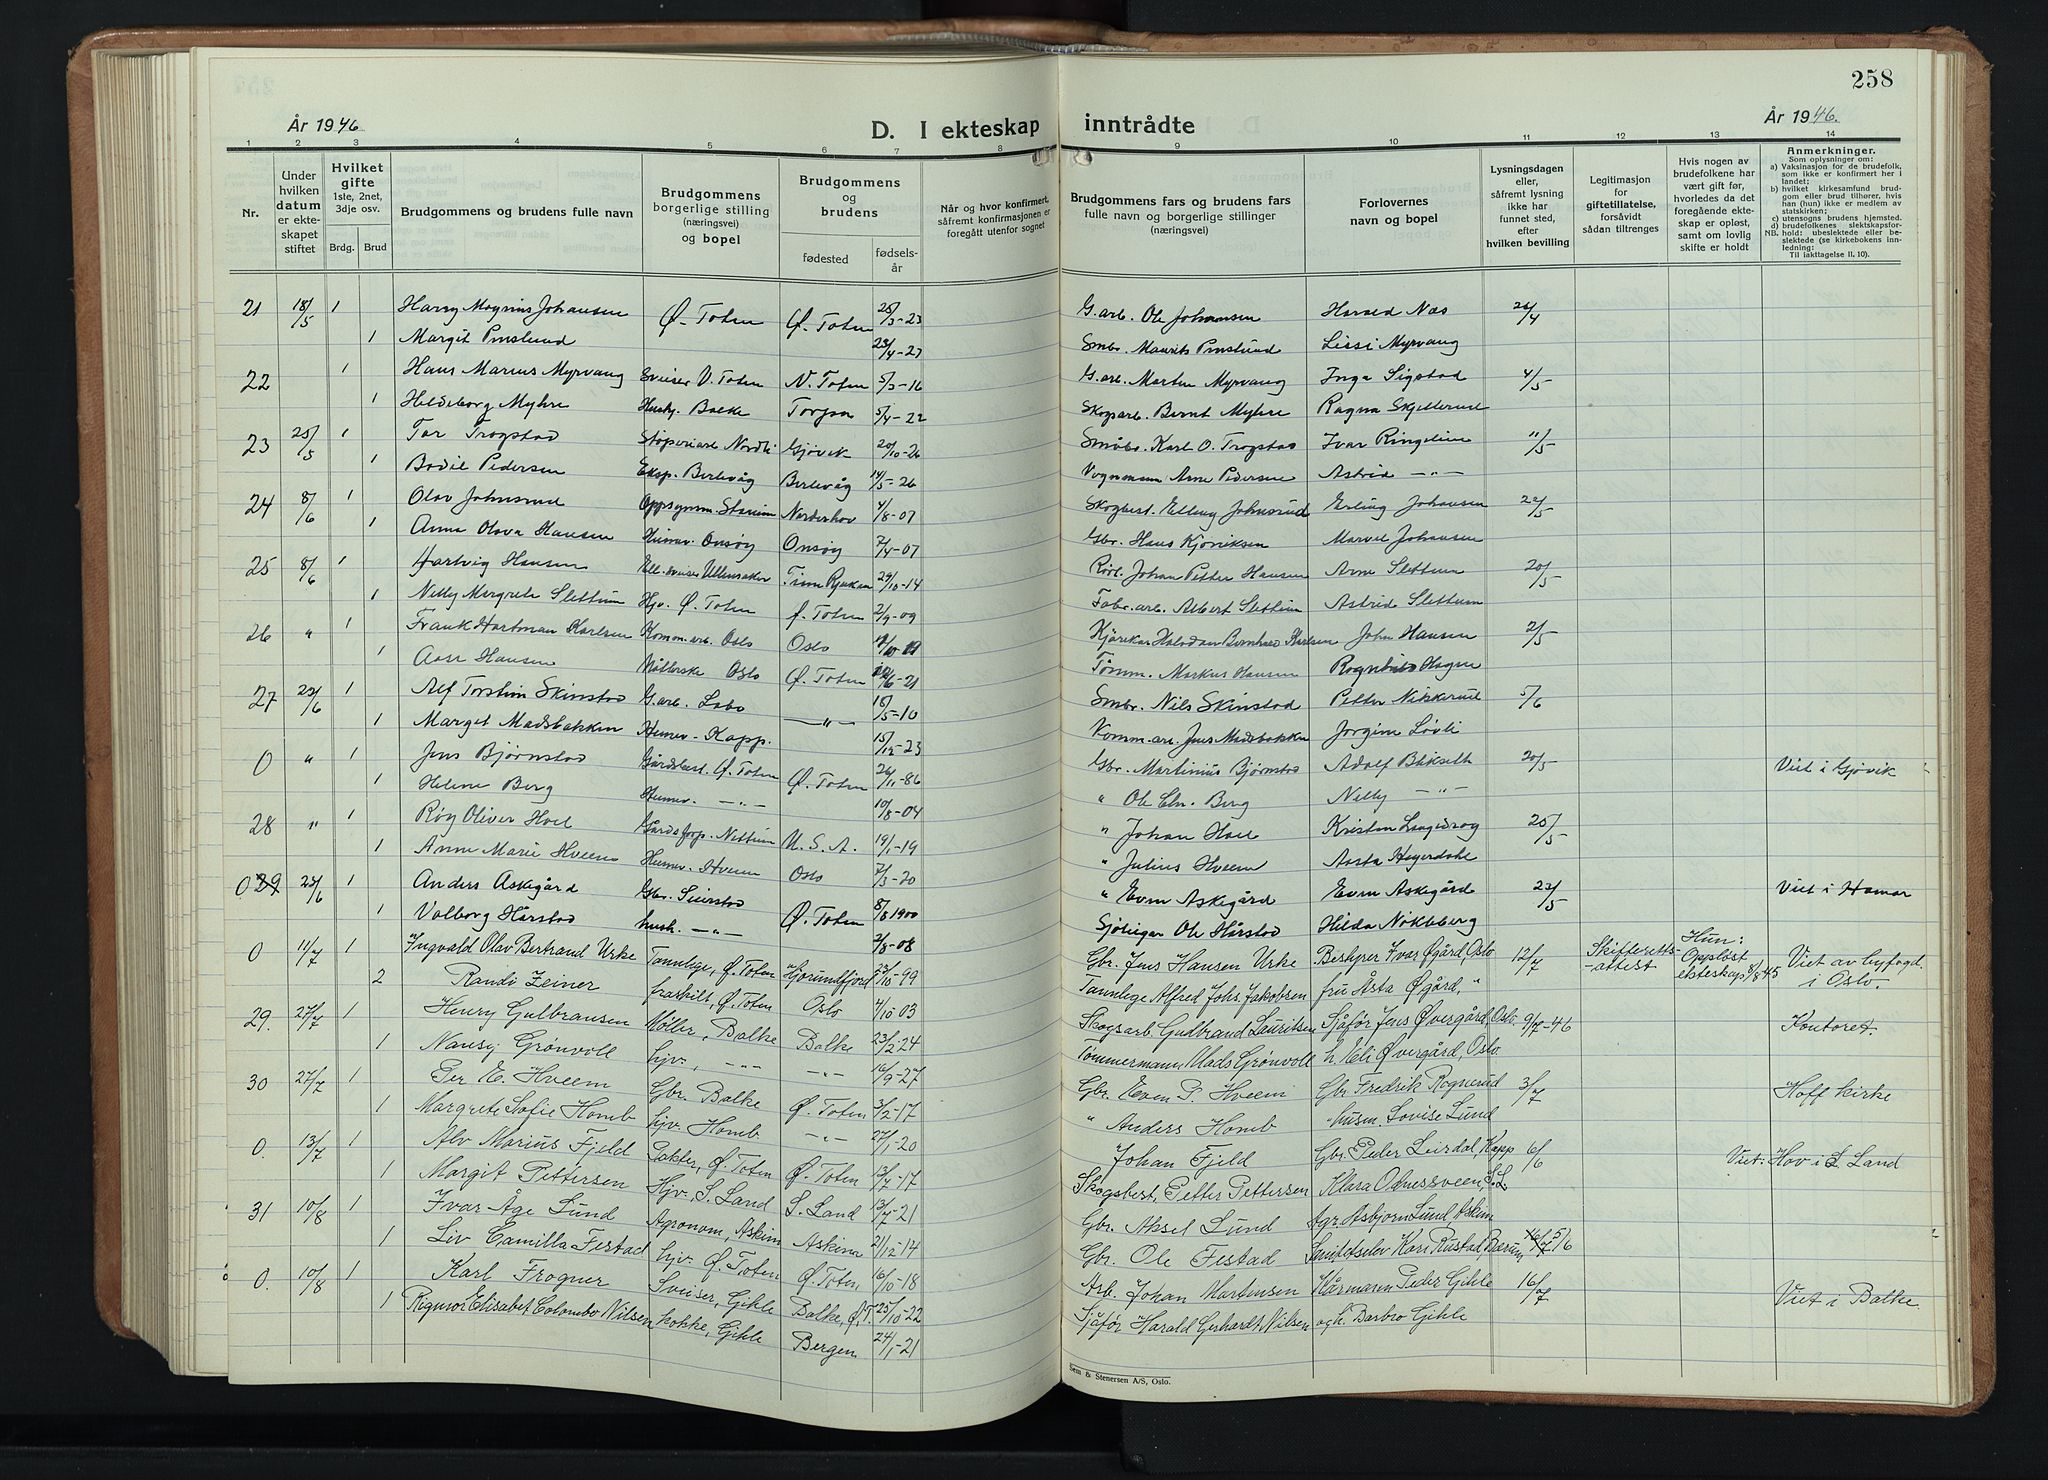 258
År 1946
D. I ekteskap inntrådte
År 1946.
1 2 3 4 5 6 7 8 9 10 11 12 13 14
Nr.
Under hvilken datum er ekteskapet stiftet
Hvilket gifte 1ste, 2net, 3dje osv.
Brdg. Brud
Brudgommens og brudens fulle navn
Brudgommens borgerlige stilling (næringsvei) og bopel
Brudgommens og brudens
fødested
fødselsår
Når og hvor konfirmert, såfremt konfirmasjonen er foregått utenfor sognet
Brudgommens fars og brudens fars fulle navn og borgerlige stillinger (næringsvei)
Forlovernes navn og bopel
Lysningsdagen eller, såfremt lysning ikke har funnet sted, efter hvilken bevilling
Legitimasjon for giftetillatelse, forsåvidt sådan tiltrenges
Hvis nogen av brudefolkene har vært gift før, hvorledes da det foregående ekteskap er opløst, samt om lovlig skifte er holdt
Anmerkninger.
Som oplysninger om:
a) Vaksinasjon for de brudefolk, som ikke er konfirmert her i landet;
b) hvilket kirkesamfund brudgom eller brud tilhører, hvis han (hun) ikke er medlem av statskirken;
c) utensogns brudens hjemsted.
d) brudefolkenes slektskapsforhold: ubeslektede eller beslektede (se kirkebokens innledning:
NB.
Til iakttagelse II, 10).
21 18/5 1 Harry Magnus Johansen Ø. Toten Ø. Toten 25/3-23 G.arb. Ole Johansen Harald Næs 26/4
1 Margit 23/4-27 Smbr. Maurits Lissi Myrvang
22 1 Hans Marius Myrvang Sveiser V. Toten N. Toten 5/3-16 G.arb. Martin Myrvang Inga Sigstad 4/5
1 Hildeborg Myhre Hushj. Balke Torpa 5/4-22 Skogsarb. Bernt Myhre Ragna Skjellerud
23 25/5 1 Tor Trogstad Støperiarb. Nordli Gjøvik 20/10-26 Småbr. Karl O. Trogstad Ivar Ringelien 11/5
1 Bodil Pedersen Eksp. Berlevåg Berlevåg 14/5-26 Vognmann Arne Pedersen Astrid -"-
24 8/6 1 Olav Johnsrud Oppsynsm. Norderhov 4/8-07 Skogbest. Elling Johnsrud Erling Johansen 22/5
1 Anna Olava Hansen Husmor Onsøy Onsøy 7/4-07 Gbr. Hans Kjøniksen Marvel Johansen
25 8/6 1 Hartvig Hansen Ell.sveiser Ullensaker Tinn Rjukan 29/10-14 Rørl. Johan Petter Hansen Arne Slettum 20/5
1 Nelly Margrete Slettum Hjv. Ø. Toten Ø. Toten 2/9-09 Fabr.arb. Albert Slettum Astrid Slettum
26 " 1 Frank Hartman Karlsen Komm.arb. Oslo Oslo Kjørekar Halvdan Bernhard Karlsen John Hansen 2/5
1 Aase Hansen Oslo Ø. Toten Tømm. Markus Hansen Ragnhild Hagen
27 23/6 1 Alf Torstein Skinstad G.arb. Labo 15/5-10 Smbr. Nils Skinstad Petter Nøkkerud 5/6
1 Marget Madsbakken Husmor-Kapp. -"- 15/12-23 Komm.arb. Jens Madsbakken Jorgine Løvli
0 " 1 Jens Bjørnstad Gårdsbest. Ø. Toten Ø. Toten 26/11-86 Gbr. Martinius Bjørnstad Adolf Bakseth 20/5 Viet i Gjøvik
1 Helene Berg Husmor -"- 10/8-04 " Ole Chr. Berg Nelly -"-
28 " 1 Roy Oliver Hoel Gårdsforp. Nettum U.S.A. 19/1-19 " Johan Hoel Kristen Langedrag 25/5
1 Anne Marie Hveem Husmor-Hveem Oslo 7/3-20 " Julius Hveem Aasta Heyerdahl
0 29 23/6 1 Anders Askegård Gbr. Seierstad Ø. Toten 8/8 1900 " Even Askegård Even Askegård 22/5 Viet i Hamar
1 Valborg Hårstad hush. -"- 2/8-08 Sjøleigar Ole Hårstad Hilda Nøkleberg
0 11/7 1 Ingvald Olav Bertrand Urke Tannlege, Ø. Toten Hjørundfjord 22/10-99 Gbr. Jens Hansen Urke Bestyrer Ivar Øgård, Oslo 12/7 Skifteretts-attest Hun: Oppløst ekteskap 8/8 45 Viet av byfogd. i Oslo.
2 Randi Zeiner fraskilt, Ø. Toten Oslo 4/10 03 Tannlege Alfred Johs. Jakobsen fru Åsta Øgård, "
29. 27/7 1 Henry Gulbransen Møller, Balke Balke 23/2-24 Skogsarb. Gudbrand Lauritsen Sjåfør Jens Øvergård, Oslo 9/7-46 Kontoret.
1 Nansy Grønvoll hjv., -"- -"- 16/9-27 Tømmermann Mads Grønvoll h. Eli Øvergård, Oslo
30 27/7 1 Per E. Hveem Gbr. Balke Ø. Toten 3/2-17 Gbr. Even P. Hveem Gbr. Fredrik Rognerud 3/7 Hoff kirke
1 Margrete Sofie Homb hjv. Homb -"- 27/1-20 " Anders Homb husm. Lovise Lund
0. 13/7 1 Alv Marius Fjeld Pakter, Ø. Toten Ø. Toten 13/7-17 Johan Fjeld Gbr. Peder Leirdal, Kapp 6/6 Viet: Hov i S. Land
1 Margit Pettersen Hjv., S. Land S. Land 13/7-21 Skogsbest. Petter Pettersen Klara Odnessveen, S.L.
31 10/8 1 Ivar Åge Lund Agronom, Askim Askim 21/12-14 Gbr. Aksel Lund Agr. Asbjørn Lund, Askim
1 Liv Camilla Festad hjv. Ø. Toten Ø. Toten, 16/10-18 Gbr. Ole Festad Sanitetselev Kari Rustad, Bærum
0. 10/8 1 Karl Frogner Sveiser, Gihle Balke, Ø.T. 25/10-22 Arb. Johan Martinsen Kårmann Peder Gihle 16/7 Viet i Balke.
1 Rigmor Elisabet Colombo Nilsen kokke, Gihle Bergen 24/1-21 Sjåfør Harald Gerhardt Nilsen og h. Barbro Gihle
Sem & Stenersen A/S, Oslo.